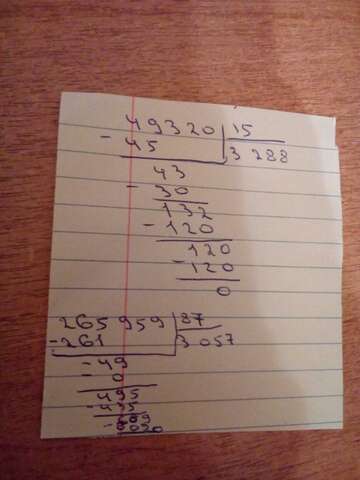 49320 15
- 45 3288
43
- 30
132
- 120
120
- 120
0
265959 87
- 261 3057
- 49
0
495
- 435
609